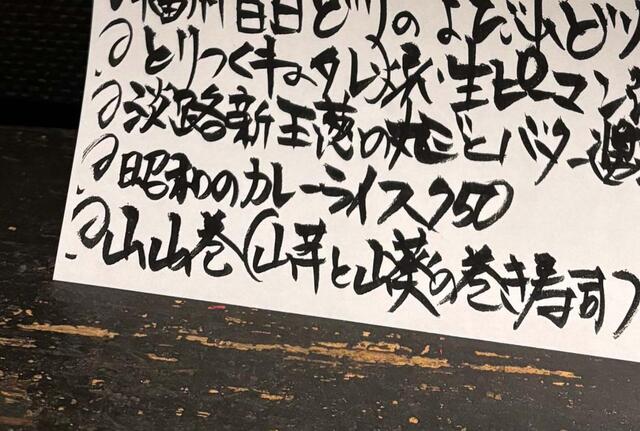 播州百日どりの よだれどり
とりつくねタレ焼 生ピーマン
淡路新玉葱の塩とバター
昭和のカレーライス 750
山山巻(山芋と山葵の巻き寿司)